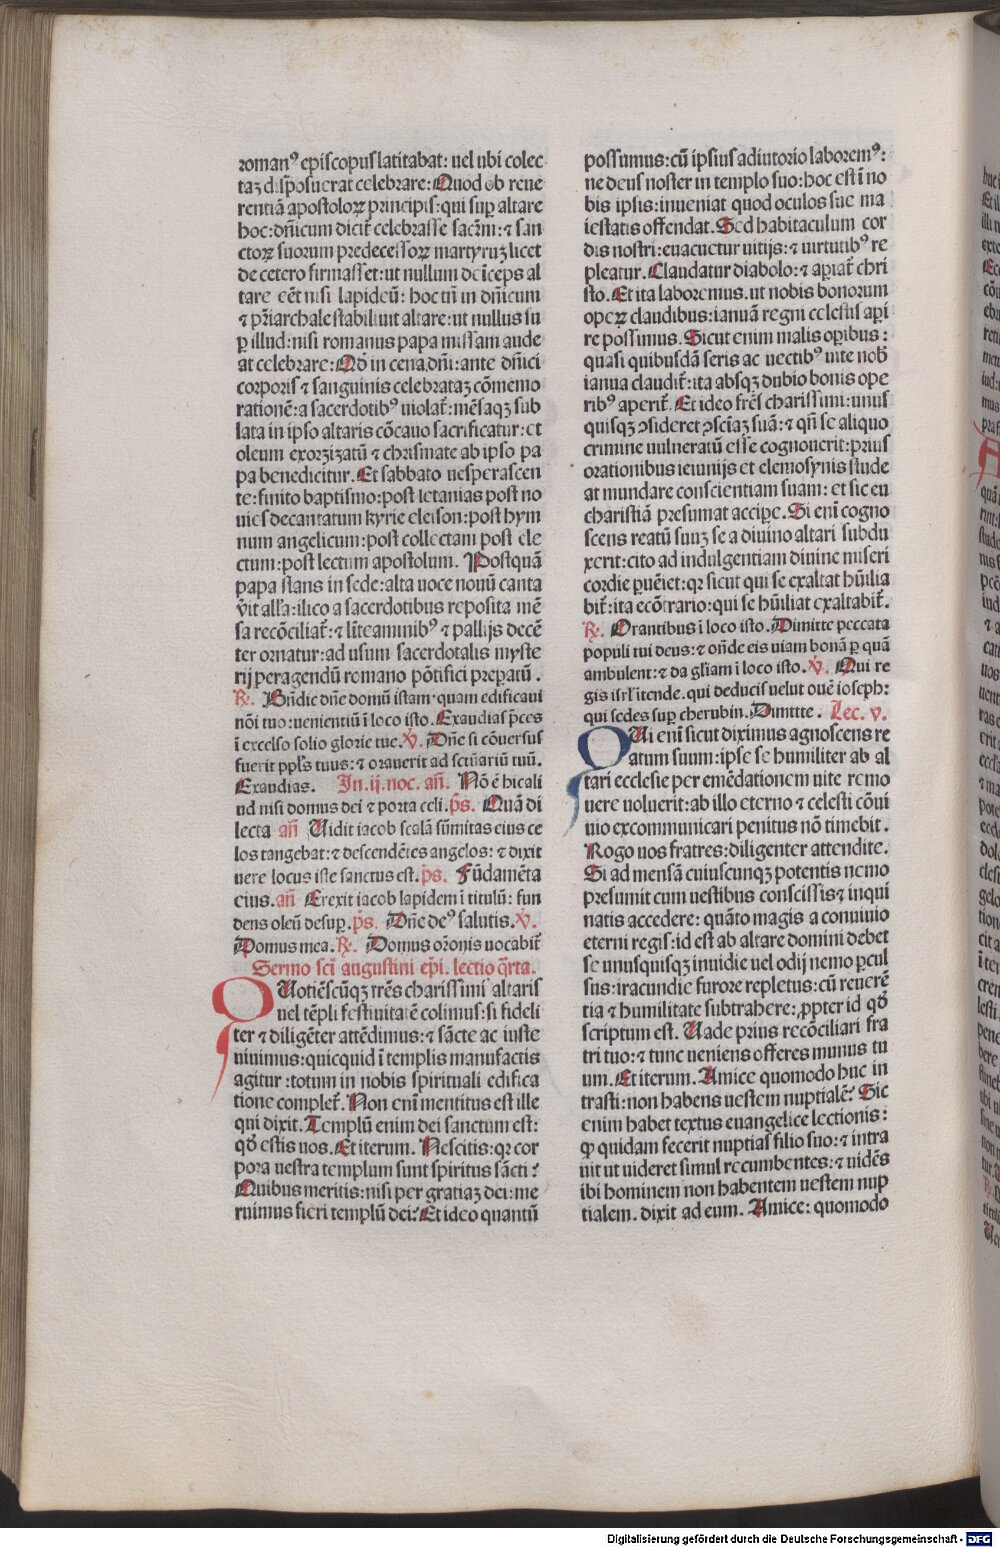 romanꝰ episcopus latitabat: uel ubi colec
taꝫ disposuerat celebrare: Quod ob reue
rentiā apostoloꝝ principis: qui suꝑ altare
hoc: dn̄icum dicit̄ celebrasse sacr̄m: ⁊ san
ctoꝝ suorum predecessoꝝ martyruꝫ licet
de cetero firmasset: ut nullum deīceps al
tare eēt nisi lapideū: hoc tn̄ in dn̄icum
⁊ pr̄iarchale stabiliuit altare: ut nullus su
ꝑ illud: nisi romanus papa missam aude
at celebrare: Qd̄ in cena dn̄i: ante dn̄ici
corporis ⁊ sanguinis celebrataꝫ cōmemo
rationē: a sacerdotibꝰ uiolat̄: mēsaqꝫ sub
lata in ipso altaris cōcauo sacrificatur: et
oleum exorzizatū ⁊ chrismate ab ipso pa
pa benedicitur. Et sabbato uesperascen
te: finito baptismo: post letanias post no
uies decantatum kyrie eleison: post hym
num angelicum: post collectam post ele
ctum: post lectum apostolum. Postquā
papa stans in sede: alta uoce nouū canta
v̄it all'a: ilico a sacerdotibus reposita mē
sa recōciliat̄: ⁊ līteaminibꝰ ⁊ pallijs decē
ter ornatur: ad usum sacerdotalis myste
rij peragendū romano pōtifici preꝑatū.
℟. Bn̄dic dn̄e domū istam quam edificaui
nōi tuo: uenientiū ī loco isto. Exaudias p̄ces
ī excelso solio glorie tue. ℣. Dn̄e si cōuersus
fuerit ppl's tuus: ⁊ orauerit ad sctuariū tuū.
Exaudias. In .ij. noc. an̄. Nō ē hic ali
ud nisi domus dei ⁊ porta celi. p̄s. Quā di
lecta an̄ Uidit iacob scalā sūmitas eius ce
los tangebat: ⁊ descendētes angelos: ⁊ dixit
uere locus iste sanctus est. p̄s. Fūdamēta
eius. an̄ Erexit iacob lapidem ī titulū: fun
dens oleū desuꝑ. p̄s. Dn̄e deꝰ salutis. ℣.
Domus mea. ℟. Domus or̄onis uocabit̄
Sermo sci̅ augustini ep̄i. lectio q̄rta.
QUotiēscūqꝫ fr̄es charissimi altaris
uel tēpli festiuitatē colimus: si fideli
ter ⁊ diligēter attēdimus: ⁊ sācte ac iuste
uiuimus: quicquid ī templis manufactis
agitur: totum in nobis spirituali edifica
tione complet̄. Non enī mentitus est ille
qui dixit. Templū enim dei sanctum est:
qd̄ estis uos. Et iterum. Nescitis: qꝛ cor
pora uestra templum sunt spiritus sācti?
Quibus meritis: nisi per gratiaꝫ dei: me
ruimus fieri templū dei? Et ideo quantū
possumus: cū ipsius adiutorio laboremꝰ:
ne deus noster in templo suo: hoc est ī no
bis ipsis: inueniat quod oculos sue ma
iestatis offendat. Sed habitaculum cor
dis nostri: euacuetur uitijs: ⁊ uirtutibꝰ re
pleatur. Claudatur diabolo: ⁊ aꝑiat̄ chri
sto. Et ita laboremus. ut nobis bonorum
opeꝝ claudibus: ianuā regni celestis aꝑi
re possimus. Sicut enim malis oꝑibus:
quasi quibusdā seris ac uectibꝰ uite nob̄
ianua claudit̄: ita absqꝫ dubio bonis ope
ribꝰ aperit̄. Et ideo fr̄es charissimi: unus
quisqꝫ ꝯsideret ꝯsciaꝫ suā: ⁊ qn̄ se aliquo
crimine uulneratū esse cognouerit: prius
orationibus ieiunijs et elemosynis stude
at mundare conscientiam suam: et sic eu
charistiā presumat acciꝑe. Si enī cogno
scens reatū suuꝫ se a diuino altari subdu
xerit: cito ad indulgentiam diuine miseri
cordie ꝑuēiet: qꝛ sicut qui se exaltat hūilia
bit̄: ita ecōtrario: qui se hūiliat exaltabit̄.
℟. Orantibus ī loco isto. Dimitte peccata
populi tui deus: ⁊ on̄de eis uiam bonā ꝑ quā
ambulent: ⁊ da gl'iam ī loco isto. ℣. Qui re
gis isrl' ītende. qui deducis uelut ouē ioseph:
qui sedes suꝑ cherubin. Dimitte. Lec. v.
QUi enī sicut diximus agnoscens re
atum suum: ipse se humiliter ab al
tari ecclesie per emēdationem uite remo
uere uoluerit: ab illo eterno ⁊ celesti cōui
uio excommunicari penitus nō timebit.
Rogo uos fratres: diligenter attendite.
Si ad mensā cuiuscunqꝫ potentis nemo
presumit cum uestibus conscissis ⁊ inqui
natis accedere: quāto magis a conuiuio
eterni regis: id est ab altare domini debet
se unusquisqꝫ inuidie uel odij nemo ꝑcul
sus: iracundie furore repletus: cū reuerē
tia ⁊ humilitate subtrahere: ꝓpter id qd̄
scriptum est. Uade prius recōciliari fra
tri tuo: ⁊ tunc ueniens offeres munus tu
um. Et iterum. Amice quomodo huc in
trasti: non habens uestem nuptialē? Sic
enim habet textus euangelice lectionis:
ꝙ quidam fecerit nuptias filio suo: ⁊ intra
uit ut uideret simul recumbentes: ⁊ uidēs
ibi hominem non habentem uestem nup
tialem. dixit ad eum. Amice: quomodo
Digitalisierung gefördert durch die Deutsche Forschungsgemeinschaft - DFG